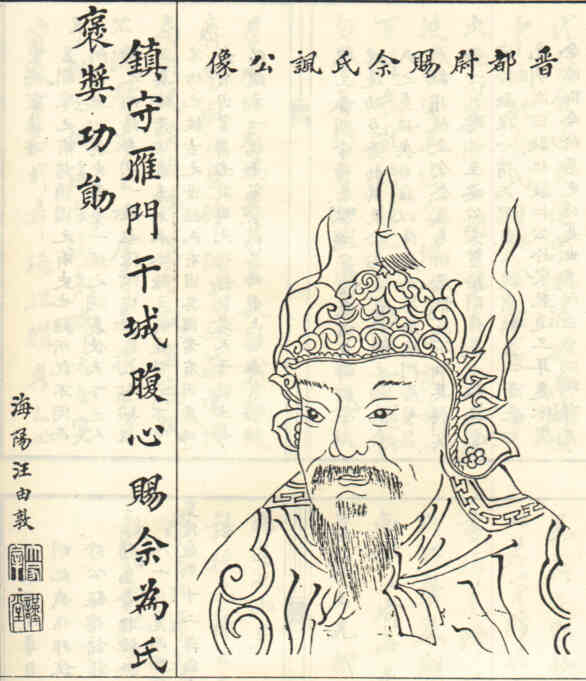 晋都尉賜佘氏諷公像
鎮守雁門干城腹心賜佘為氏
褒奬功勛
海陽汪由敦